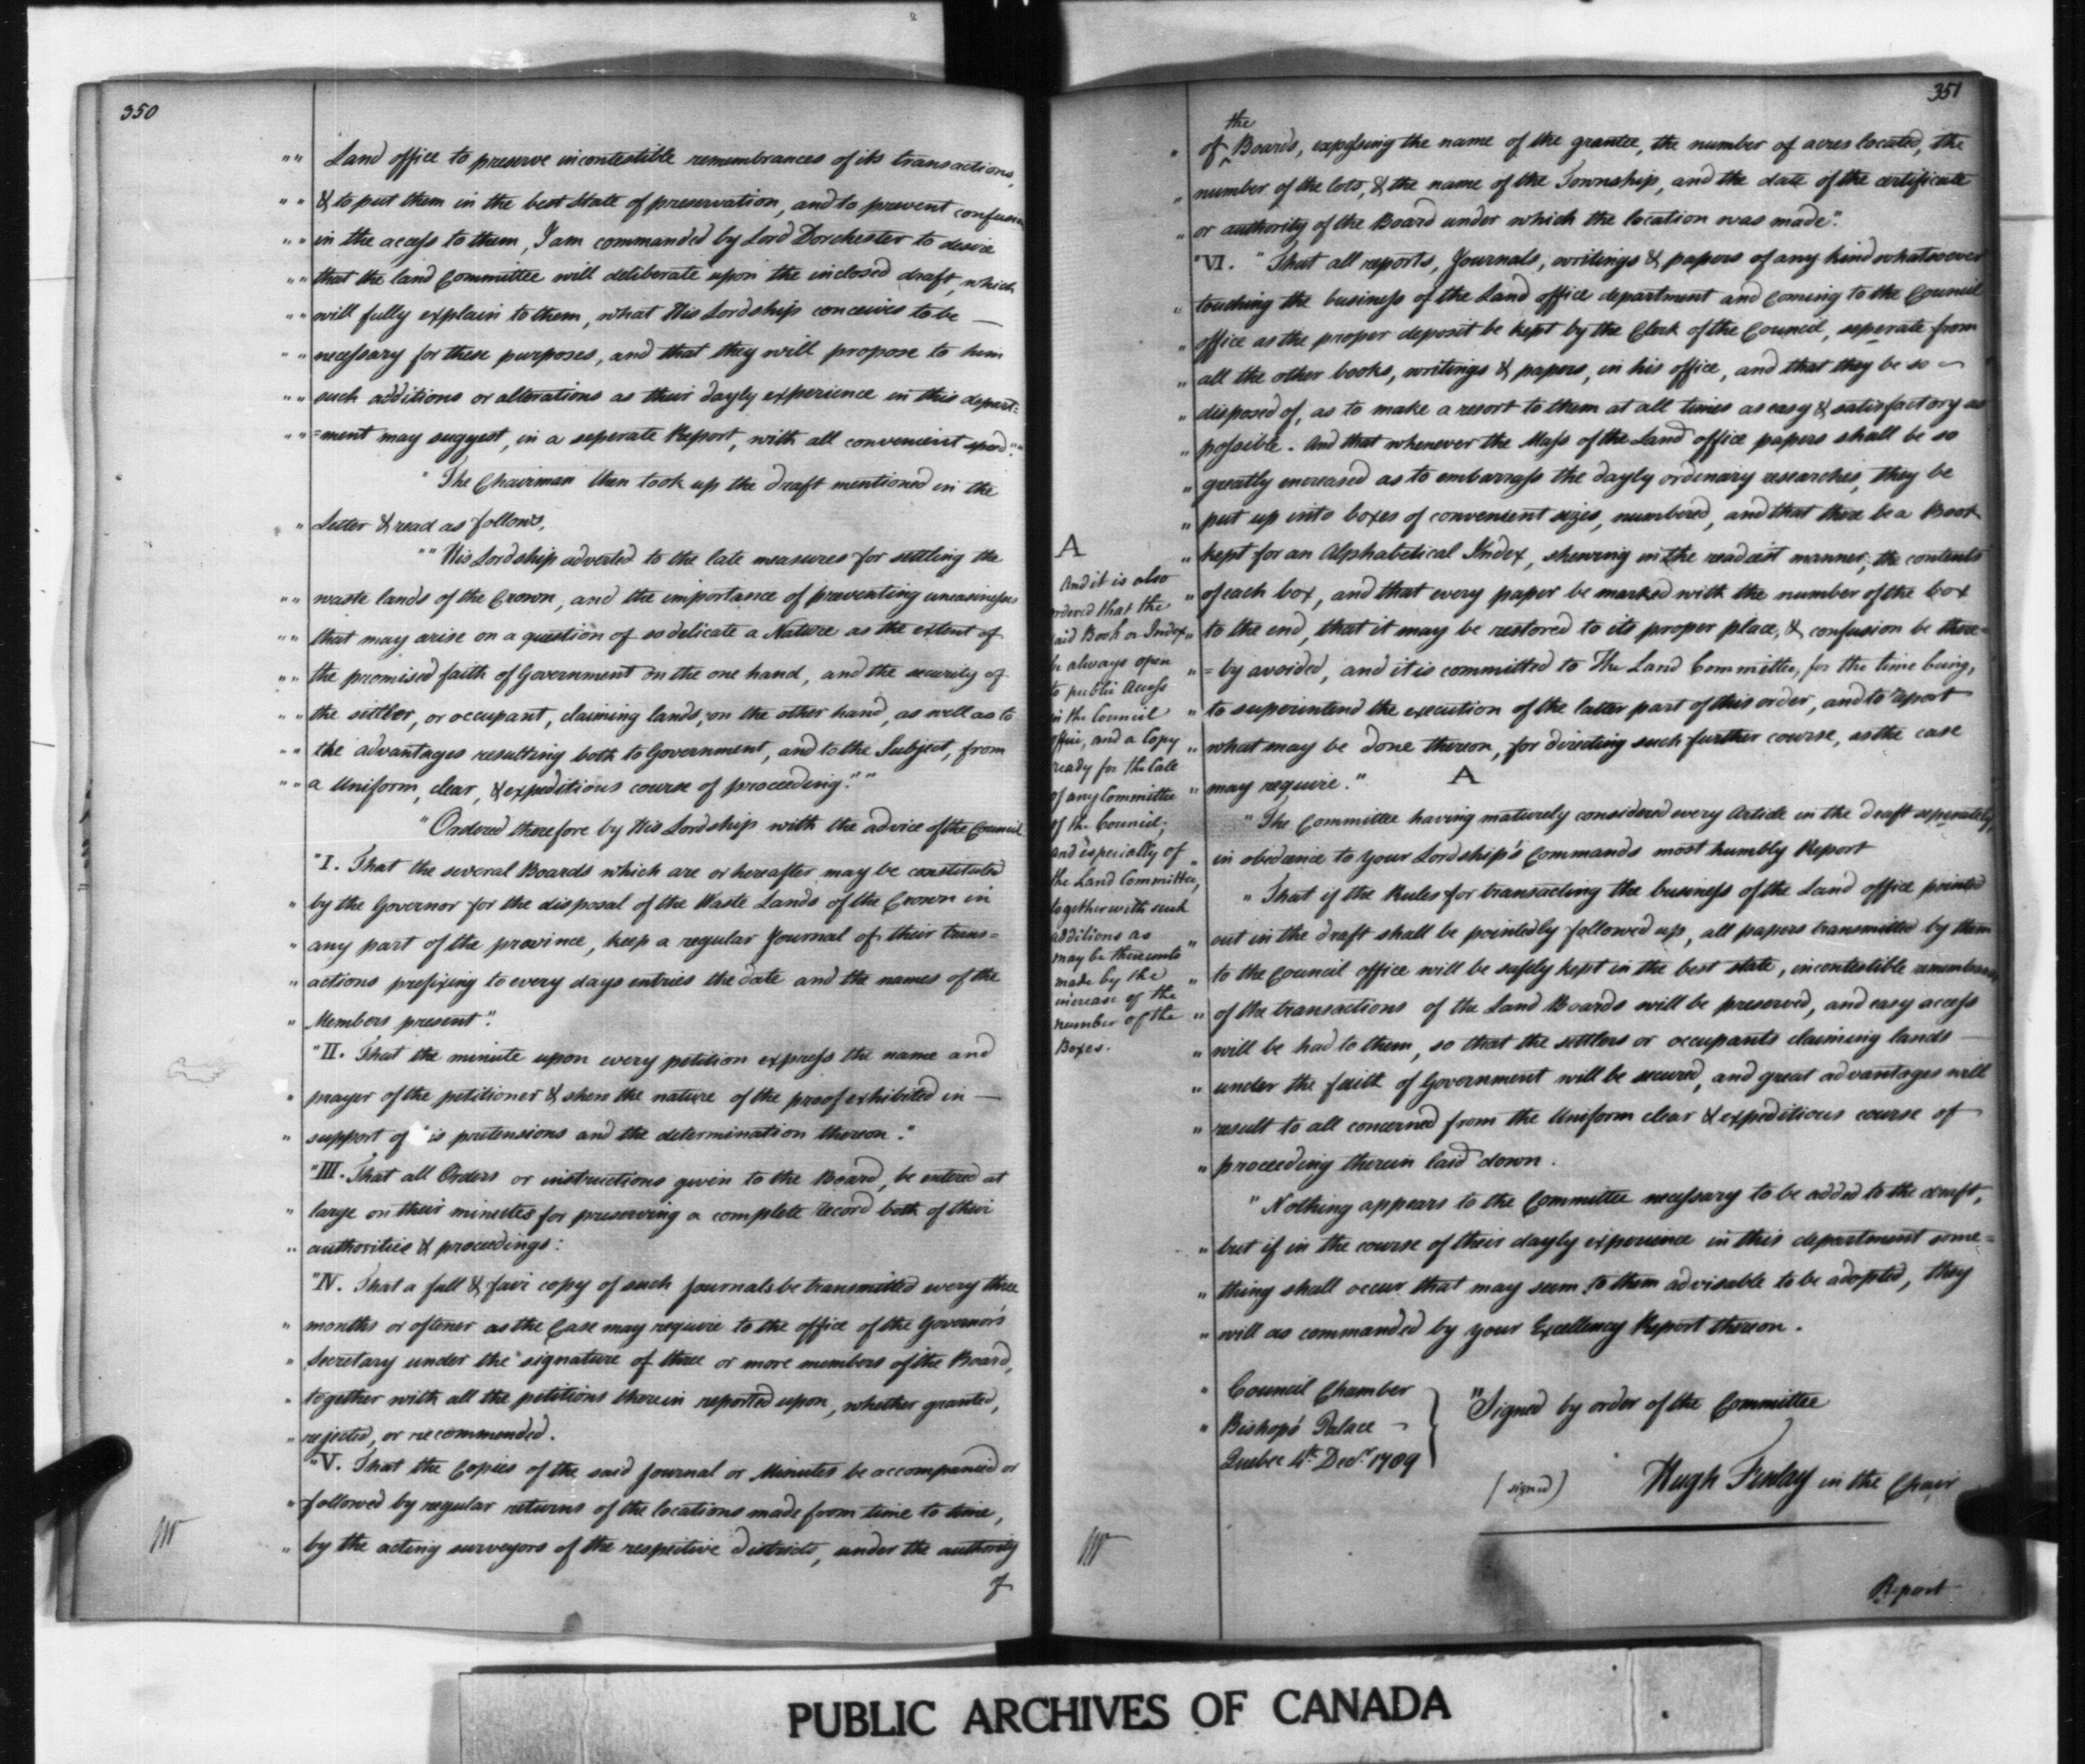 350
"" Land office to preserve incontestible remembrances of its transactions,
"" & to put them in the best State of preservation, and to prevent confusion
"" in the access to them, I am commanded by Lord Dorchester to desire
"" that the land Committee will deliberate upon the inclosed draft, which
"" will fully explain to them, what His Lordship conceives to be —
"" necessary for these purposes, and that they will propose to him
"" such additions or alterations as their dayly experience in this depart=
"" =ment may suggest, in a seperate Report, with all convenient speed.""
" The Chairman then took up the draft mentioned in the
" Letter & read as follows,
"" His Lordship adverted to the late measures for settling the
"" waste lands of the Crown, and the importance of preventing uneasinesses
"" that may arise on a question of so delicate a Nature as the extent of
"" the promised faith of Government on the one hand, and the security of
"" the settler, or occupant, claiming lands, on the other hand, as well as to
"" the advantages resulting both to Government, and to the Subject, from
"" a Uniform, clear, & expeditious course of proceeding.""
"Ordered therefore by His Lordship with the advice of the Council
"I. That the several Boards which are or hereafter may be constituted
" by the Governor for the disposal of the Waste Lands of the Crown in
" any part of the province, keep a regular Journal of their trans=
" actions prefixing to every days entries the date and the names of the
" Members present".
"II. That the minute upon every petition express the name and
" prayer of the petitioner & shew the nature of the proof exhibited in —
" support of is pretensions and the determination thereon."
"III. That all Orders or instructions given to the Board, be entered at
" large on their minutes for preserving a complete record both of their
" authorities & proceedings:
"IV. That a full & fair copy of such Journals be transmitted every three
" months or oftener as the Case may require to the office of the Governor's
" Secretary under the signature of three or more members of the Board,
" together with all the petitions therein reported upon, whether granted,
" rejected, or recommended.
"V. That the Copies of the said Journal or Minutes be accompanied or
" followed by regular returns of the locations made from time to time,
" by the acting surveyors of the respective districts, under the authority
of
351
the
" of Boards, expressing the name of the grantee, the number of acres located, the
" number of the lots, & the name of the Township, and the date of the certificate
" or authority of the Board under which the location was made".
"VI. "That all reports, Journals, writings & papers of any kind whatsoever
" touching the business of the Land office department and coming to the Council
" office as the proper deposit be kept by the Clerk of the Council, seperate from
" all the other books, writings & papers, in his office, and that they be so —
" disposed of, as to make a resort to them at all times as easy & satisfactory as
" possible. And that whenever the Mass of the Land office papers shall be so
" greatly encreased as to embarrass the dayly ordenary researches, they be
" put up into boxes of convenient sizes, numbered, and that there be a Book
" kept for an Alphabetical Index, shewing in the readiest manner, the contents
" of each box, and that every paper be marked with the number of the box
" to the end, that it may be restored to its proper place, & confusion be there=
" = by avoided, and it is committed to The Land Committee, for the time being,
" to superintend the execution of the latter part of this order, and to report
" what may be done thereon, for directing such further course, as the case
" may require." A
A
And it is also
ordered that the
said Book or Index
be always open
to public Access
in the Council
office, and a Copy
ready for the Call
of any Committee
of the Council;
and especially of
the Land Committee,
together with such
additions as
may be thereunto
made by the
increase of the
number of the
Boxes.
" The Committee having maturely considered every Article in the draft seperately,
" in obedience to your Lordship's Commands most humbly Report
" That if the Rules for transacting the business of the Land office pointed
" out in the draft shall be pointedly followed up, all papers transmitted by them
" to the Council office will be safely kept in the best state, incontestible remembrances
" of the transactions of the Land Boards will be preserved, and easy access
" will be had to them, so that the settlers or occupants claiming lands —
" under the faith of Government will be secured, and great advantages will
" result to all concerned from the Uniform clear & expeditious course of
" proceeding therein laid down.
" Nothing appears to the Committee necessary to be added to the draft,
" but if in the course of their dayly experience in this department some=
" thing shall occur that may seem to them advisable to be adopted, they
" will as commanded by your Excellency Report thereon.
" Council Chamber
" Bishop's Palace —
Quebec 4th Decr. 1789
"Signed by order of the Committee
(signed) Hugh Finlay in the Chair
Report
PUBLIC ARCHIVES OF CANADA